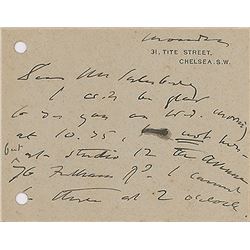 Monday
31, TITE STREET,
CHELSEA. S.W.
Dear Mrs
I will be glad
to see you on Wed. morning
at 10.35, not here
but at studio 12 The Avenue
76 Fulham Rd I cannot
be there at 2 o'clock.